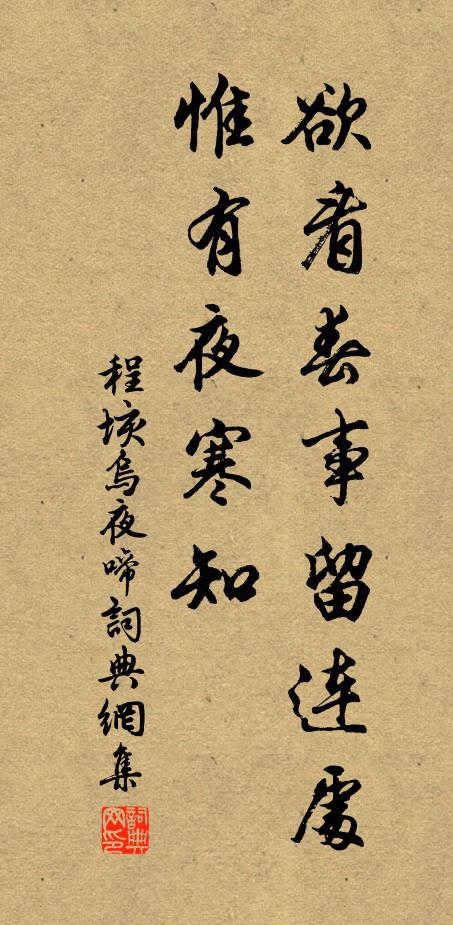 欲看春事留連處
惟有夜寒知
程垓烏夜啼詞典網集
詞典網印